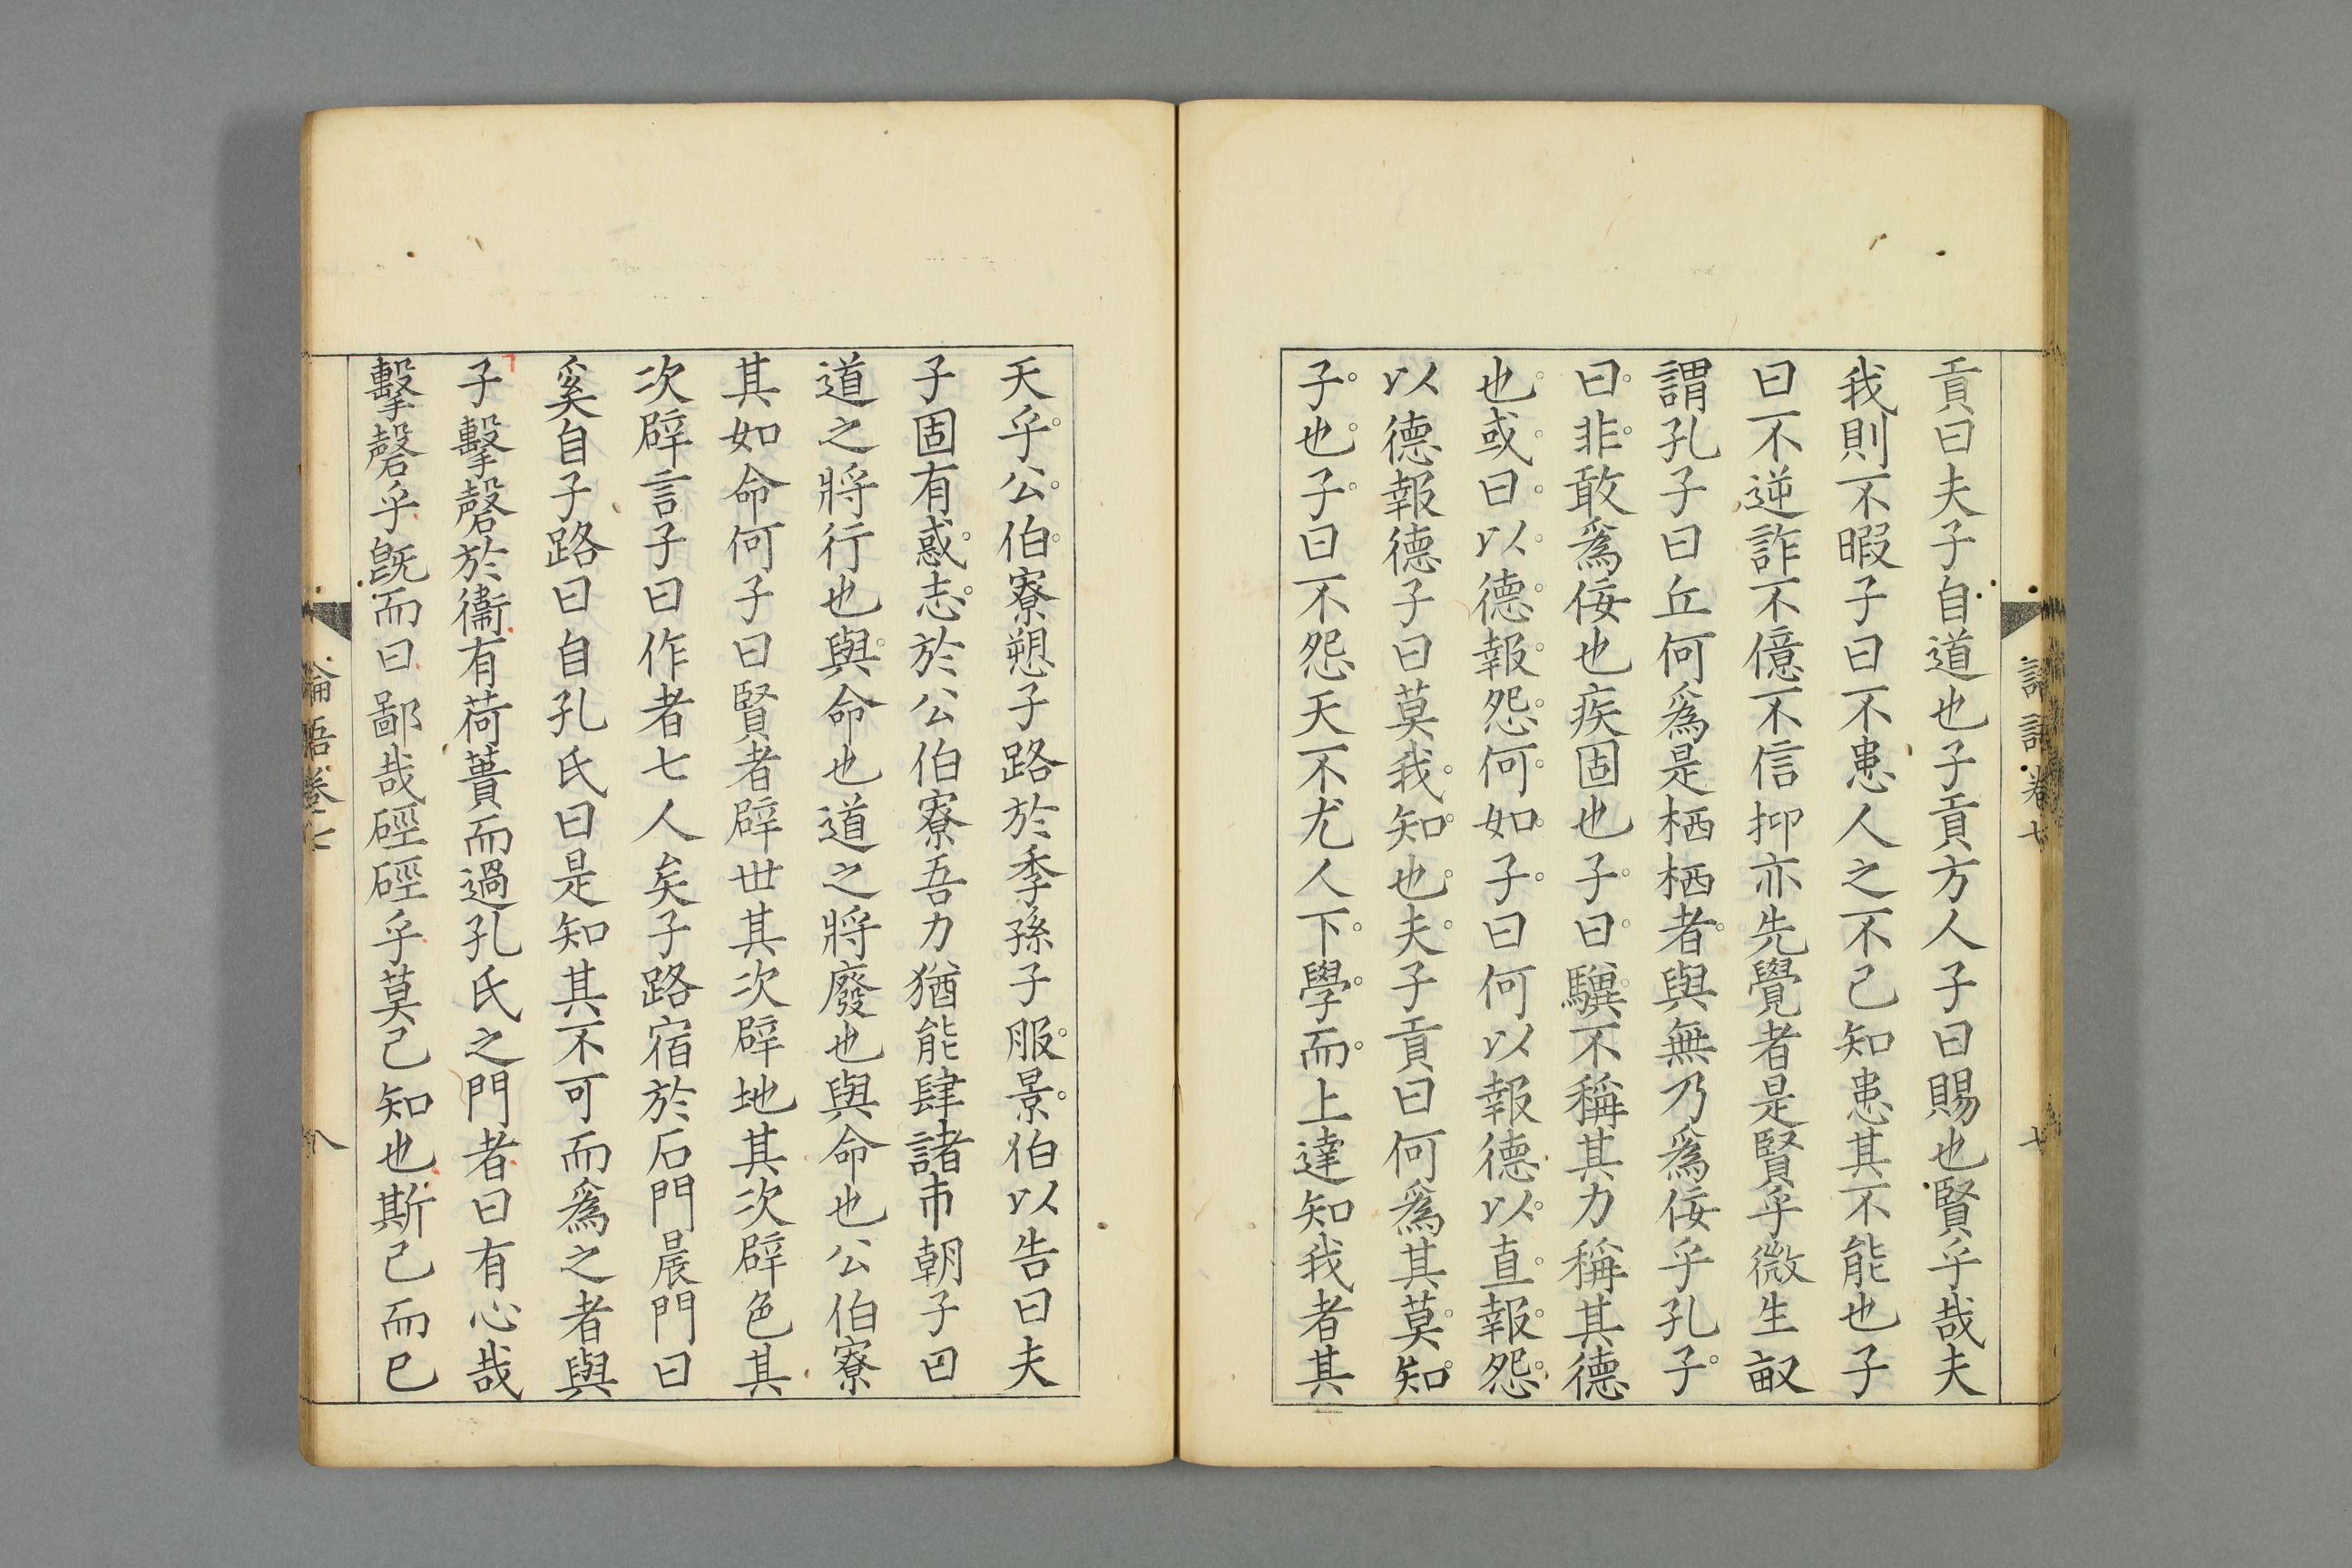 貢曰夫子自道也子貢方人子曰賜也賢乎哉夫
我則不暇子曰不患人之不己知患其不能也子
曰不逆詐不億不信抑亦先覺者是賢乎微生畝
謂孔子曰丘何爲是栖栖者與無乃爲佞乎孔子
曰非敢爲佞也疾固也子曰驥不稱其力稱其德
也或曰以德報怨何如子曰何以報德以直報怨
以德報德子曰莫我知也夫子貢曰何爲其莫知
子也子曰不怨天不尤人下學而上達知我者其
天乎公伯寮愬子路於季孫子服景伯以告曰夫
子固有惑志於公伯寮吾力猶能肆諸市朝子曰
道之將行也與命也道之將廢也與命也公伯寮
其如命何子曰賢者辟世其次辟地其次辟色其
次辟言子曰作者七人矣子路宿於石門晨門曰
奚自子路曰自孔氏曰是知其不可而爲之者與
子擊磬於衞有荷蕢而過孔氏之門者曰有心哉
擊磬乎旣而曰鄙哉硜硜乎莫己知也斯己而已
論語卷七
八